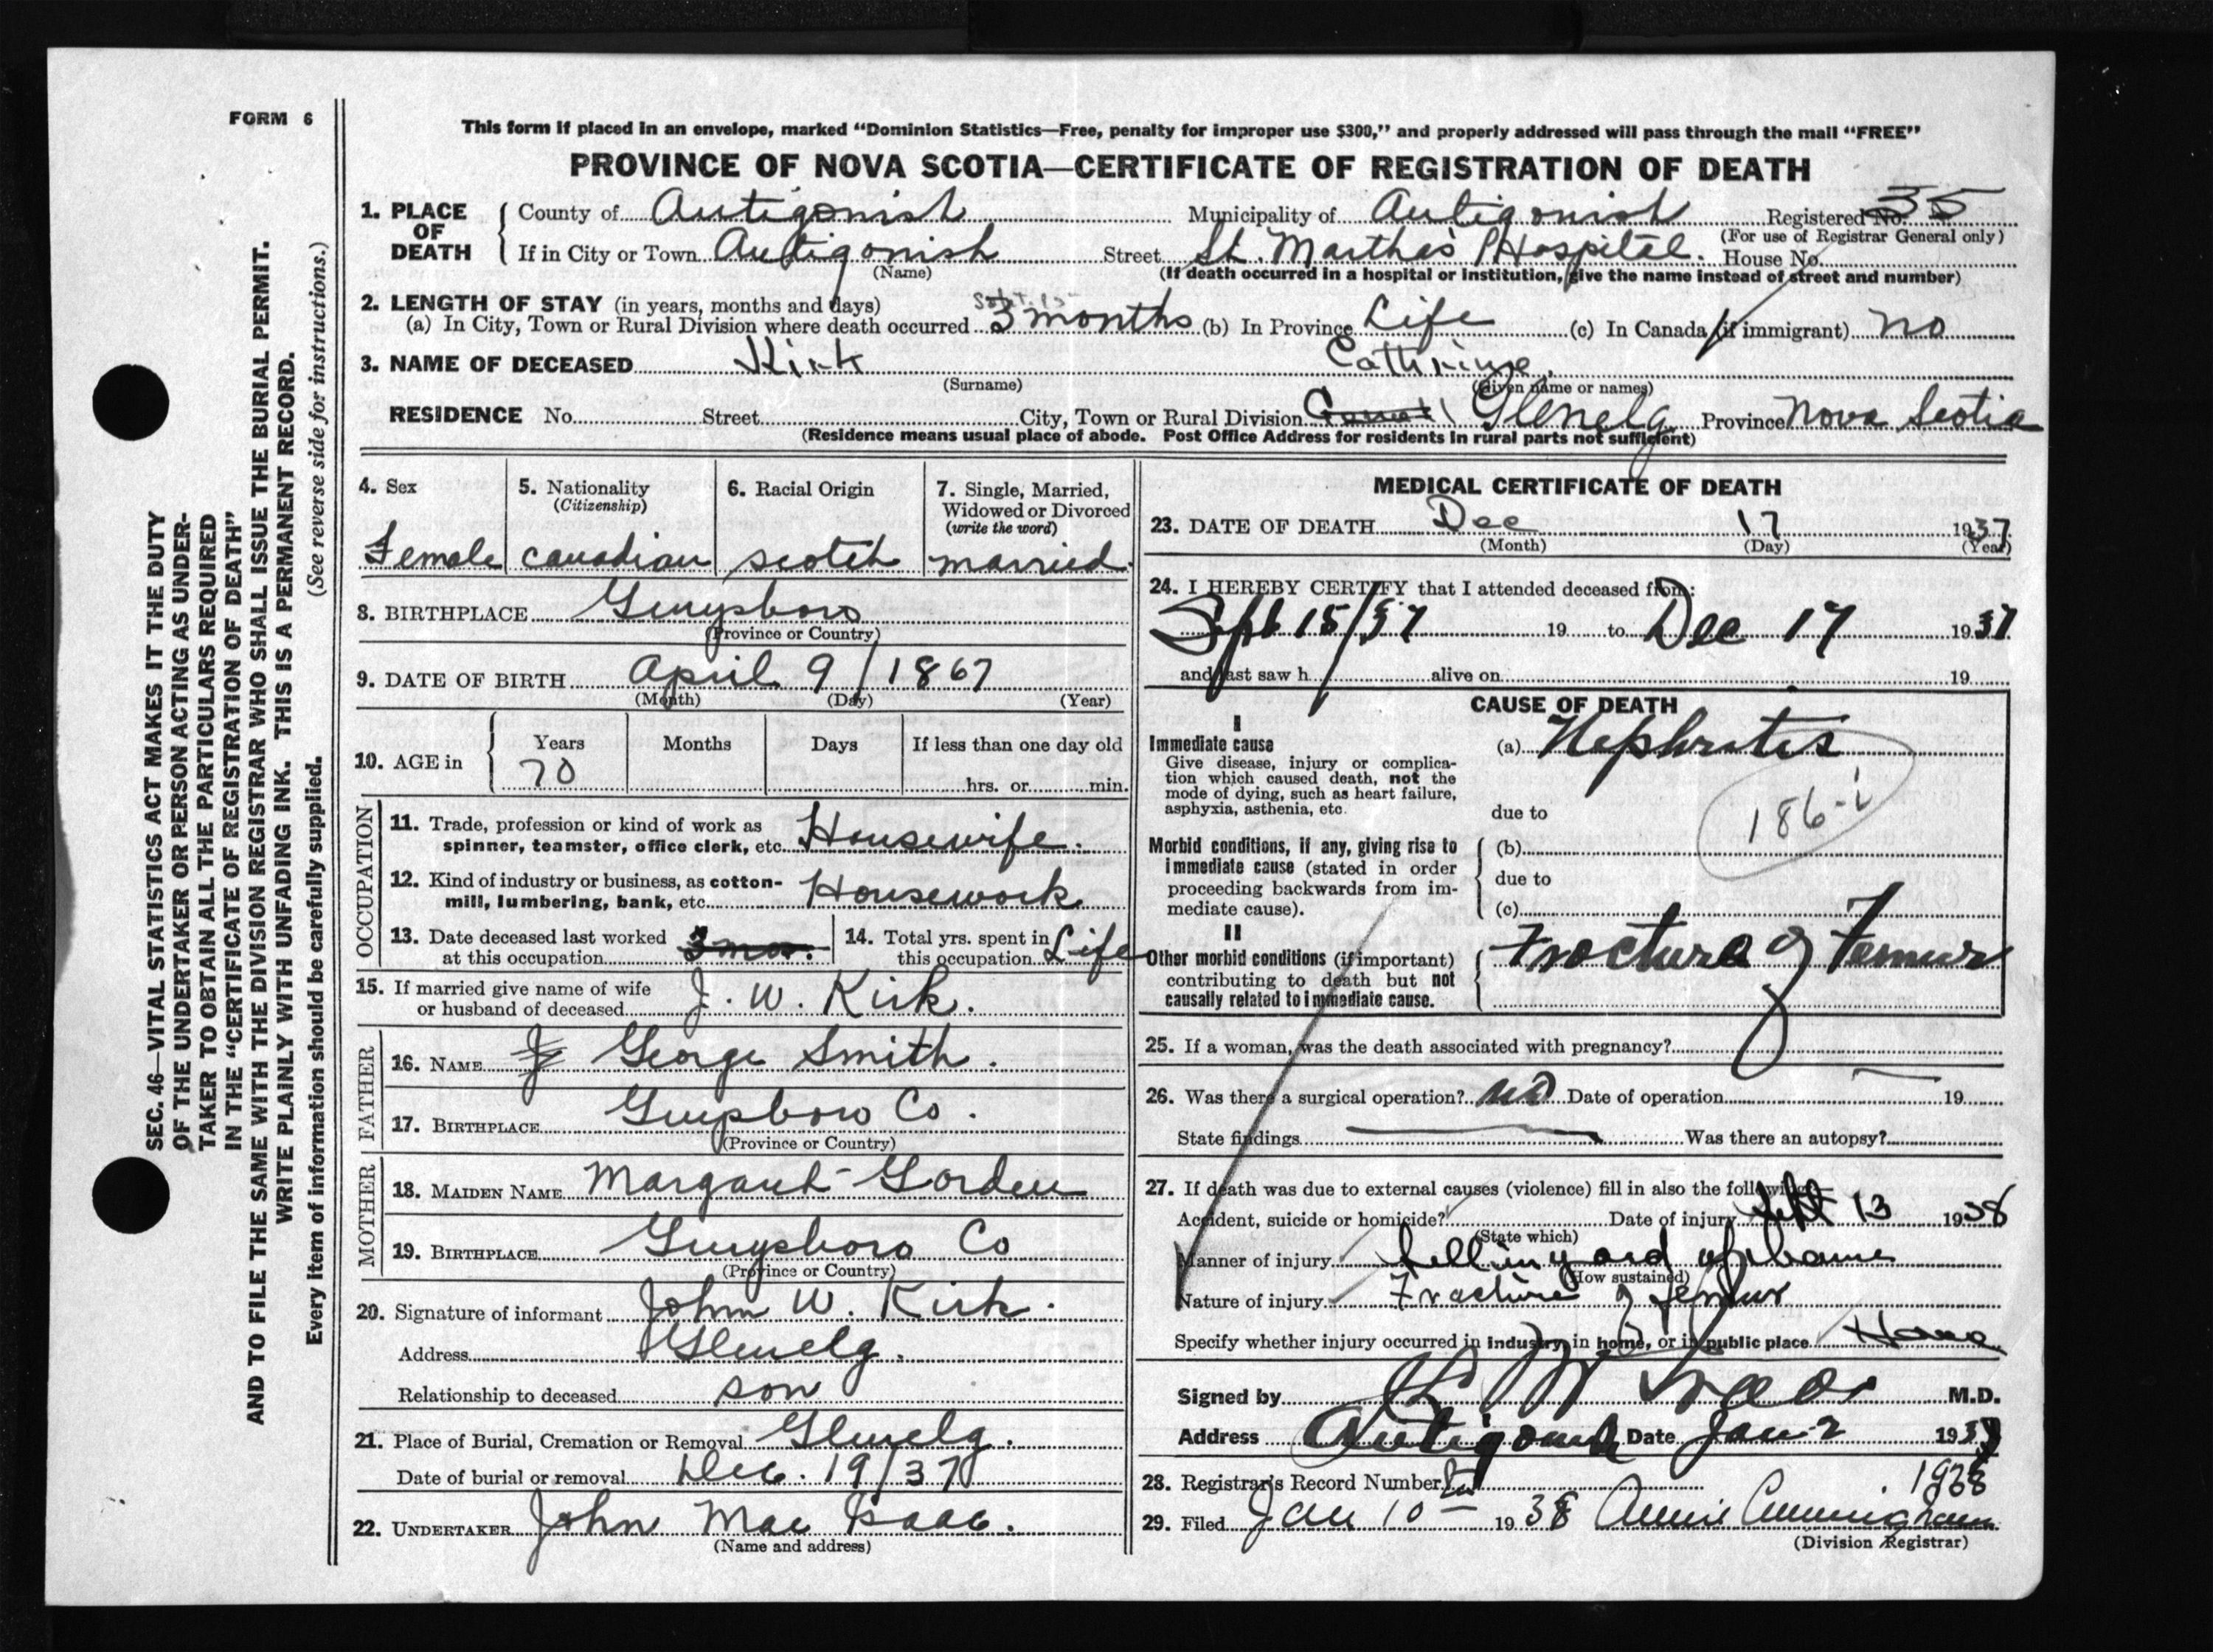 FORM 6
This form if placed in an envelope, marked “Dominion Statistics—Free, penalty for improper use $300,” and properly addressed will pass through the mail “FREE”
PROVINCE OF NOVA SCOTIA—CERTIFICATE OF REGISTRATION OF DEATH
1. PLACE OF DEATH { County of Antigonish Municipality of Antigonish Registered No. 35
(For use of Registrar General only)
If in City or Town Antigonish Street St. Martha's Hospital. House No.
(Name) (If death occurred in a hospital or institution, give the name instead of street and number)
2. LENGTH OF STAY (in years, months and days) Sept. 15
(a) In City, Town or Rural Division where death occurred 3 months (b) In Province Life (c) In Canada (if immigrant) no
3. NAME OF DECEASED Kirk Cathrine
(Surname) (Given name or names)
RESIDENCE No. Street City, Town or Rural Division Glenelg Province Nova Scotia
(Residence means usual place of abode. Post Office Address for residents in rural parts not sufficient)
4. Sex 5. Nationality 6. Racial Origin 7. Single, Married,
(Citizenship) Widowed or Divorced
(write the word)
Female canadian scotch married
8. BIRTHPLACE Guysboro
(Province or Country)
9. DATE OF BIRTH April 9 / 1867
(Month) (Day) (Year)
10. AGE in { Years Months Days If less than one day old
70 hrs. or min.
OCCUPATION
11. Trade, profession or kind of work as
spinner, teamster, office clerk, etc. Housewife.
12. Kind of industry or business, as cotton-
mill, lumbering, bank, etc. Housework
13. Date deceased last worked
at this occupation 3 mos.
14. Total yrs. spent in
this occupation Life
15. If married give name of wife
or husband of deceased J. W. Kirk.
FATHER
16. NAME George Smith.
17. BIRTHPLACE Guysboro Co.
(Province or Country)
MOTHER
18. MAIDEN NAME Margaret Gorden
19. BIRTHPLACE Guysboro Co
(Province or Country)
20. Signature of informant John W. Kirk.
Address Glenelg.
Relationship to deceased son
21. Place of Burial, Cremation or Removal Glenelg.
Date of burial or removal Dec. 19/37
22. UNDERTAKER John Mac Isaac.
(Name and address)
MEDICAL CERTIFICATE OF DEATH
23. DATE OF DEATH Dec 17 1937
(Month) (Day) (Year)
24. I HEREBY CERTIFY that I attended deceased from:
Sept 15/37 19 to Dec 17 1937
and last saw h alive on 19
CAUSE OF DEATH
I
Immediate cause (a) Nephrites
Give disease, injury or complica-
tion which caused death, not the
mode of dying, such as heart failure,
asphyxia, asthenia, etc.
due to
186-i
Morbid conditions, if any, giving rise to
immediate cause (stated in order
proceeding backwards from im-
mediate cause).
(b)
due to
(c)
II
Other morbid conditions (if important)
contributing to death but not
causally related to immediate cause.
Fracture of Femur
25. If a woman, was the death associated with pregnancy?
26. Was there a surgical operation? no Date of operation 19
State findings Was there an autopsy?
27. If death was due to external causes (violence) fill in also the following:
Accident, suicide or homicide? Date of injury Sept 13 1938
(State which)
Manner of injury fell in yard of home
(How sustained)
Nature of injury Fracture of femur
Specify whether injury occurred in industry, in home, or in public place Home
Signed by M.D.
Address Antigonish Date Jan 2 193
1938
28. Registrar's Record Number
29. Filed Jan 10th 1938 Annie Cunningham
(Division Registrar)
SEC. 46—VITAL STATISTICS ACT MAKES IT THE DUTY
OF THE UNDERTAKER OR PERSON ACTING AS UNDER-
TAKER TO OBTAIN ALL THE PARTICULARS REQUIRED
IN THE “CERTIFICATE OF REGISTRATION OF DEATH”
AND TO FILE THE SAME WITH THE DIVISION REGISTRAR WHO SHALL ISSUE THE BURIAL PERMIT.
WRITE PLAINLY WITH UNFADING INK. THIS IS A PERMANENT RECORD.
Every item of information should be carefully supplied. (See reverse side for instructions.)